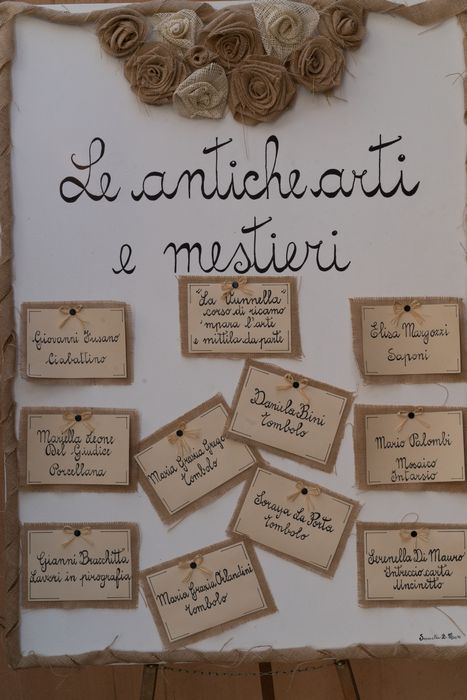 Le antiche arti
e mestieri
"La Tunnella"
corso di ricamo
impara l'arte
e mittila da parte
Giovanni Fusano
Ciabattino
Elisa Margozzi
Saponi
Mariella Leone
Del Giudice
Porcellana
Maria Grazia Grego
tombolo
Daniela Bini
tombolo
Mario Palombi
Mosaico
Intarsio
Soraya La Porta
tombolo
Gianni Bracchitta
Lavori in pirografia
Maria Grazia Orlandini
tombolo
Serenella Di Mauro
Intreccio carta
Uncinetto